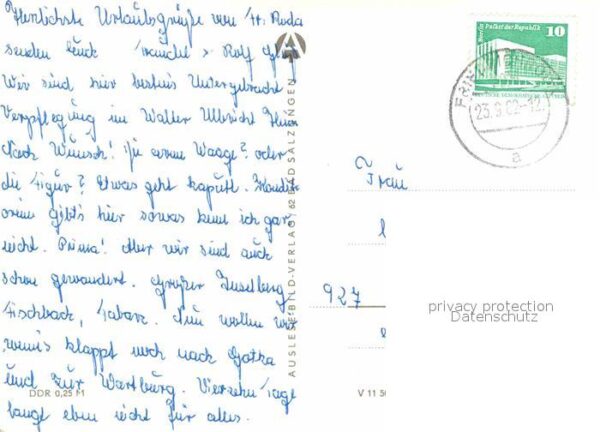 Herzlichste Urlaubsgrüße von
senden Euch Traudel & Rolf
Wir sind hier bestens Untergebracht
Verpflegung im Walter Ulbricht Haus
Nach Wunsch! Ju arme Waage? oder
die Figur? Etwas geht kaputt.
gibt's hier sowas kenn ich gar
nicht. Prima! Aber wir sind auch
schon gewandert. Großer Inselberg
Fischbach, Tabarz. Nun wollen wir
wenn's klappt noch nach Gotha
und zur Wartburg. Vierzehn Tage
langt eben nicht für alles.
DDR 0,25 M
AUSLESE-BILD-VERLAG / 62 BAD SALZUNGEN
V 11 50
Berlin Palast der Republik
10
23.9.82-12
a
Frau
927
privacy protection
Datenschutz